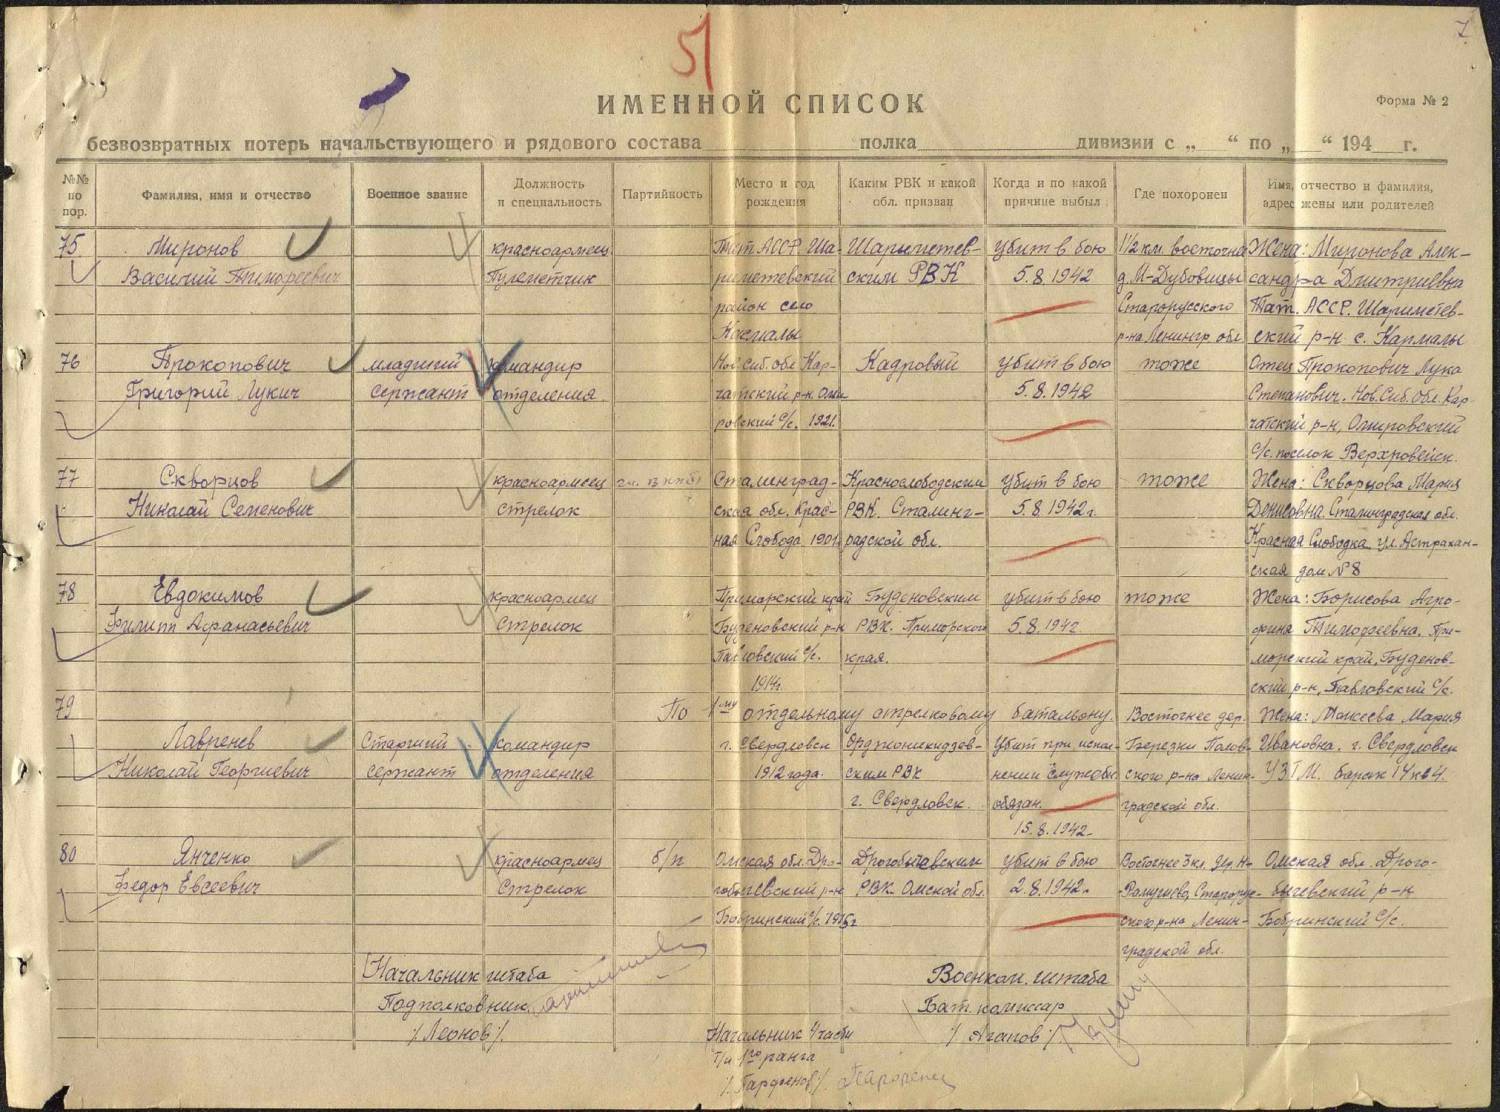 51
7.
ИМЕННОЙ СПИСОК
Форма № 2
безвозвратных потерь начальствующего и рядового состава полка дивизии с „ “ по „ “ 194 г.
№№ по пор.
Фамилия, имя и отчество
Военное звание
Должность и специальность
Партийность
Место и год рождения
Каким РВК и какой обл. призван
Когда и по какой причине выбыл
Где похоронен
Имя, отчество и фамилия, адрес жены или родителей
75 Миронов красноармеец Тат АССР Ша- Шарыметев- убит в бою 1½ км. восточнее Жена: Миронова Алек-
Василий Тимофеевич Пулеметчик риметевский ским РВК 5.8.1942 д. М-Дубовицы сандра Дмитриевна
район село Старорусского Тат. АССР. Шариметев-
Кармалы р-на Ленингр. обл. ский р-н с. Кармалы
76 Прокопович младший командир Нов.Сиб.обл. Кар- Кадровый убит в бою тоже Отец Прокопович Лука
Григорий Лукич сержант отделения гатский р-н 5.8.1942 Степанович. Нов.Сиб.Обл. Кар-
ровский с/с. 1921. гатский р-н,
с/с. поселок
77 Скворцов красноармеец Сталинград- Краснослободским убит в бою тоже Жена: Скворцова Мария
Николай Семенович стрелок ская обл. Крас- РВК. Сталинг- 5.8.1942 г. Денисовна Сталинградская обл.
ная Слобода 1901 радской обл. Красная Слободка ул. Астрахан-
ская дом № 8
78 Евдокимов красноармеец Приморский край Буденовским убит в бою тоже Жена: Борисова Агро-
Филипп Афанасьевич Стрелок " Буденовский р-н РВК. Приморского 5.8.1942 фина Тимофеевна. При-
Павловский с/с. края. морский край, Буденов-
1914г. ский р-н, Павловский с/с.
79 По 1-му отдельному стрелковому батальону. Восточнее дер. Жена: Мокеева Мария
Лавренев Старший командир г. Свердловск Орджоникидзев- Убит при испол- Березки Полав- Ивановна. г. Свердловск
Николай Георгиевич сержант отделения 1912 года. ским РВК нении службы ского р-на Ленин- УЗТМ. барак 14 кв 4.
г. Свердловск. обязан. градской обл.
15.8.1942
80 Янченко красноармеец б/п Омская обл. Дро- убит в бою Восточнее 3 кл. дер. Н- Омская обл. Дрого-
Федор Евсеевич Стрелок РВК Омской обл. 2.8.1942 г Рамушево, Старорус- бычевский р-н
Бобринский с/с. 1915г ского р-на Ленин- Бобринский с/с.
градской обл.
Начальник штаба Военком. штаба
Подполковник Бат. комиссар
/Леонов/. /Агапов/
Начальник 4 части
т/и 1го ранга
/Парфенов/.